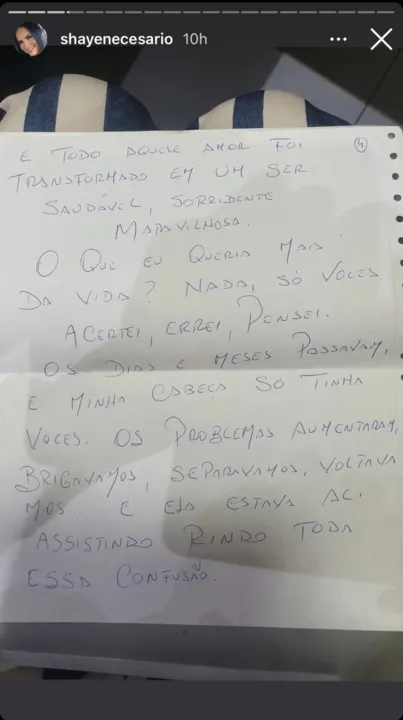 shayenecesario 10h
E TODO AQUELE AMOR FOI
4
TRANSFORMADO EM UM SER
SAUDÁVEL, SORRIDENTE
MARAVILHOSA.
O QUE EU QUERIA MAIS
DA VIDA? NADA, SÓ VOCES
ACERTEI, ERREI, PENSEI.
OS DIAS E MESES PASSAVAM,
E MINHA CABEÇA SÓ TINHA
VOCES. OS PROBLEMAS AUMENTARAM,
BRIGAVAMOS, SEPARAVAMOS, VOLTAVA
MOS. E ELA ESTAVA ALI
ASSISTINDO RINDO TODA
ESSA CONFUSÃO.